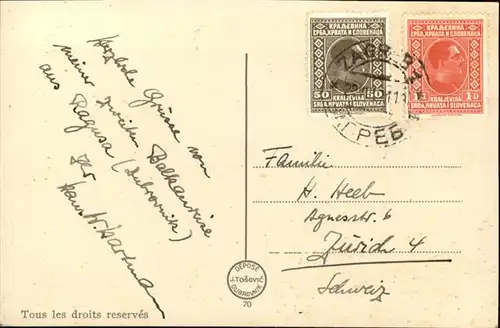 Herzliche Grüsse von
meiner zweiten Balkanreise
aus Ragusa (Dubrovnik)
Ihr
Hans W. Hartman
КРАЉЕВИНА
СРБА, ХРВАТА И СЛОВЕНАЦА
50 50
KRALJEVINA
SRBA, HRVATA I SLOVENACA
КРАЉЕВИНА
СРБА, ХРВАТА И СЛОВЕНАЦА
1Д 1D
KRALJEVINA
SRBA, HRVATA I SLOVENACA
ZAGREB
ЗАГРЕБ
Familie
H. Heeb
Agnesstr. 6
Zürich 4
Schweiz
DEPOSÉ
J. Tošović
DUBROVNIK
70
Tous les droits reservés